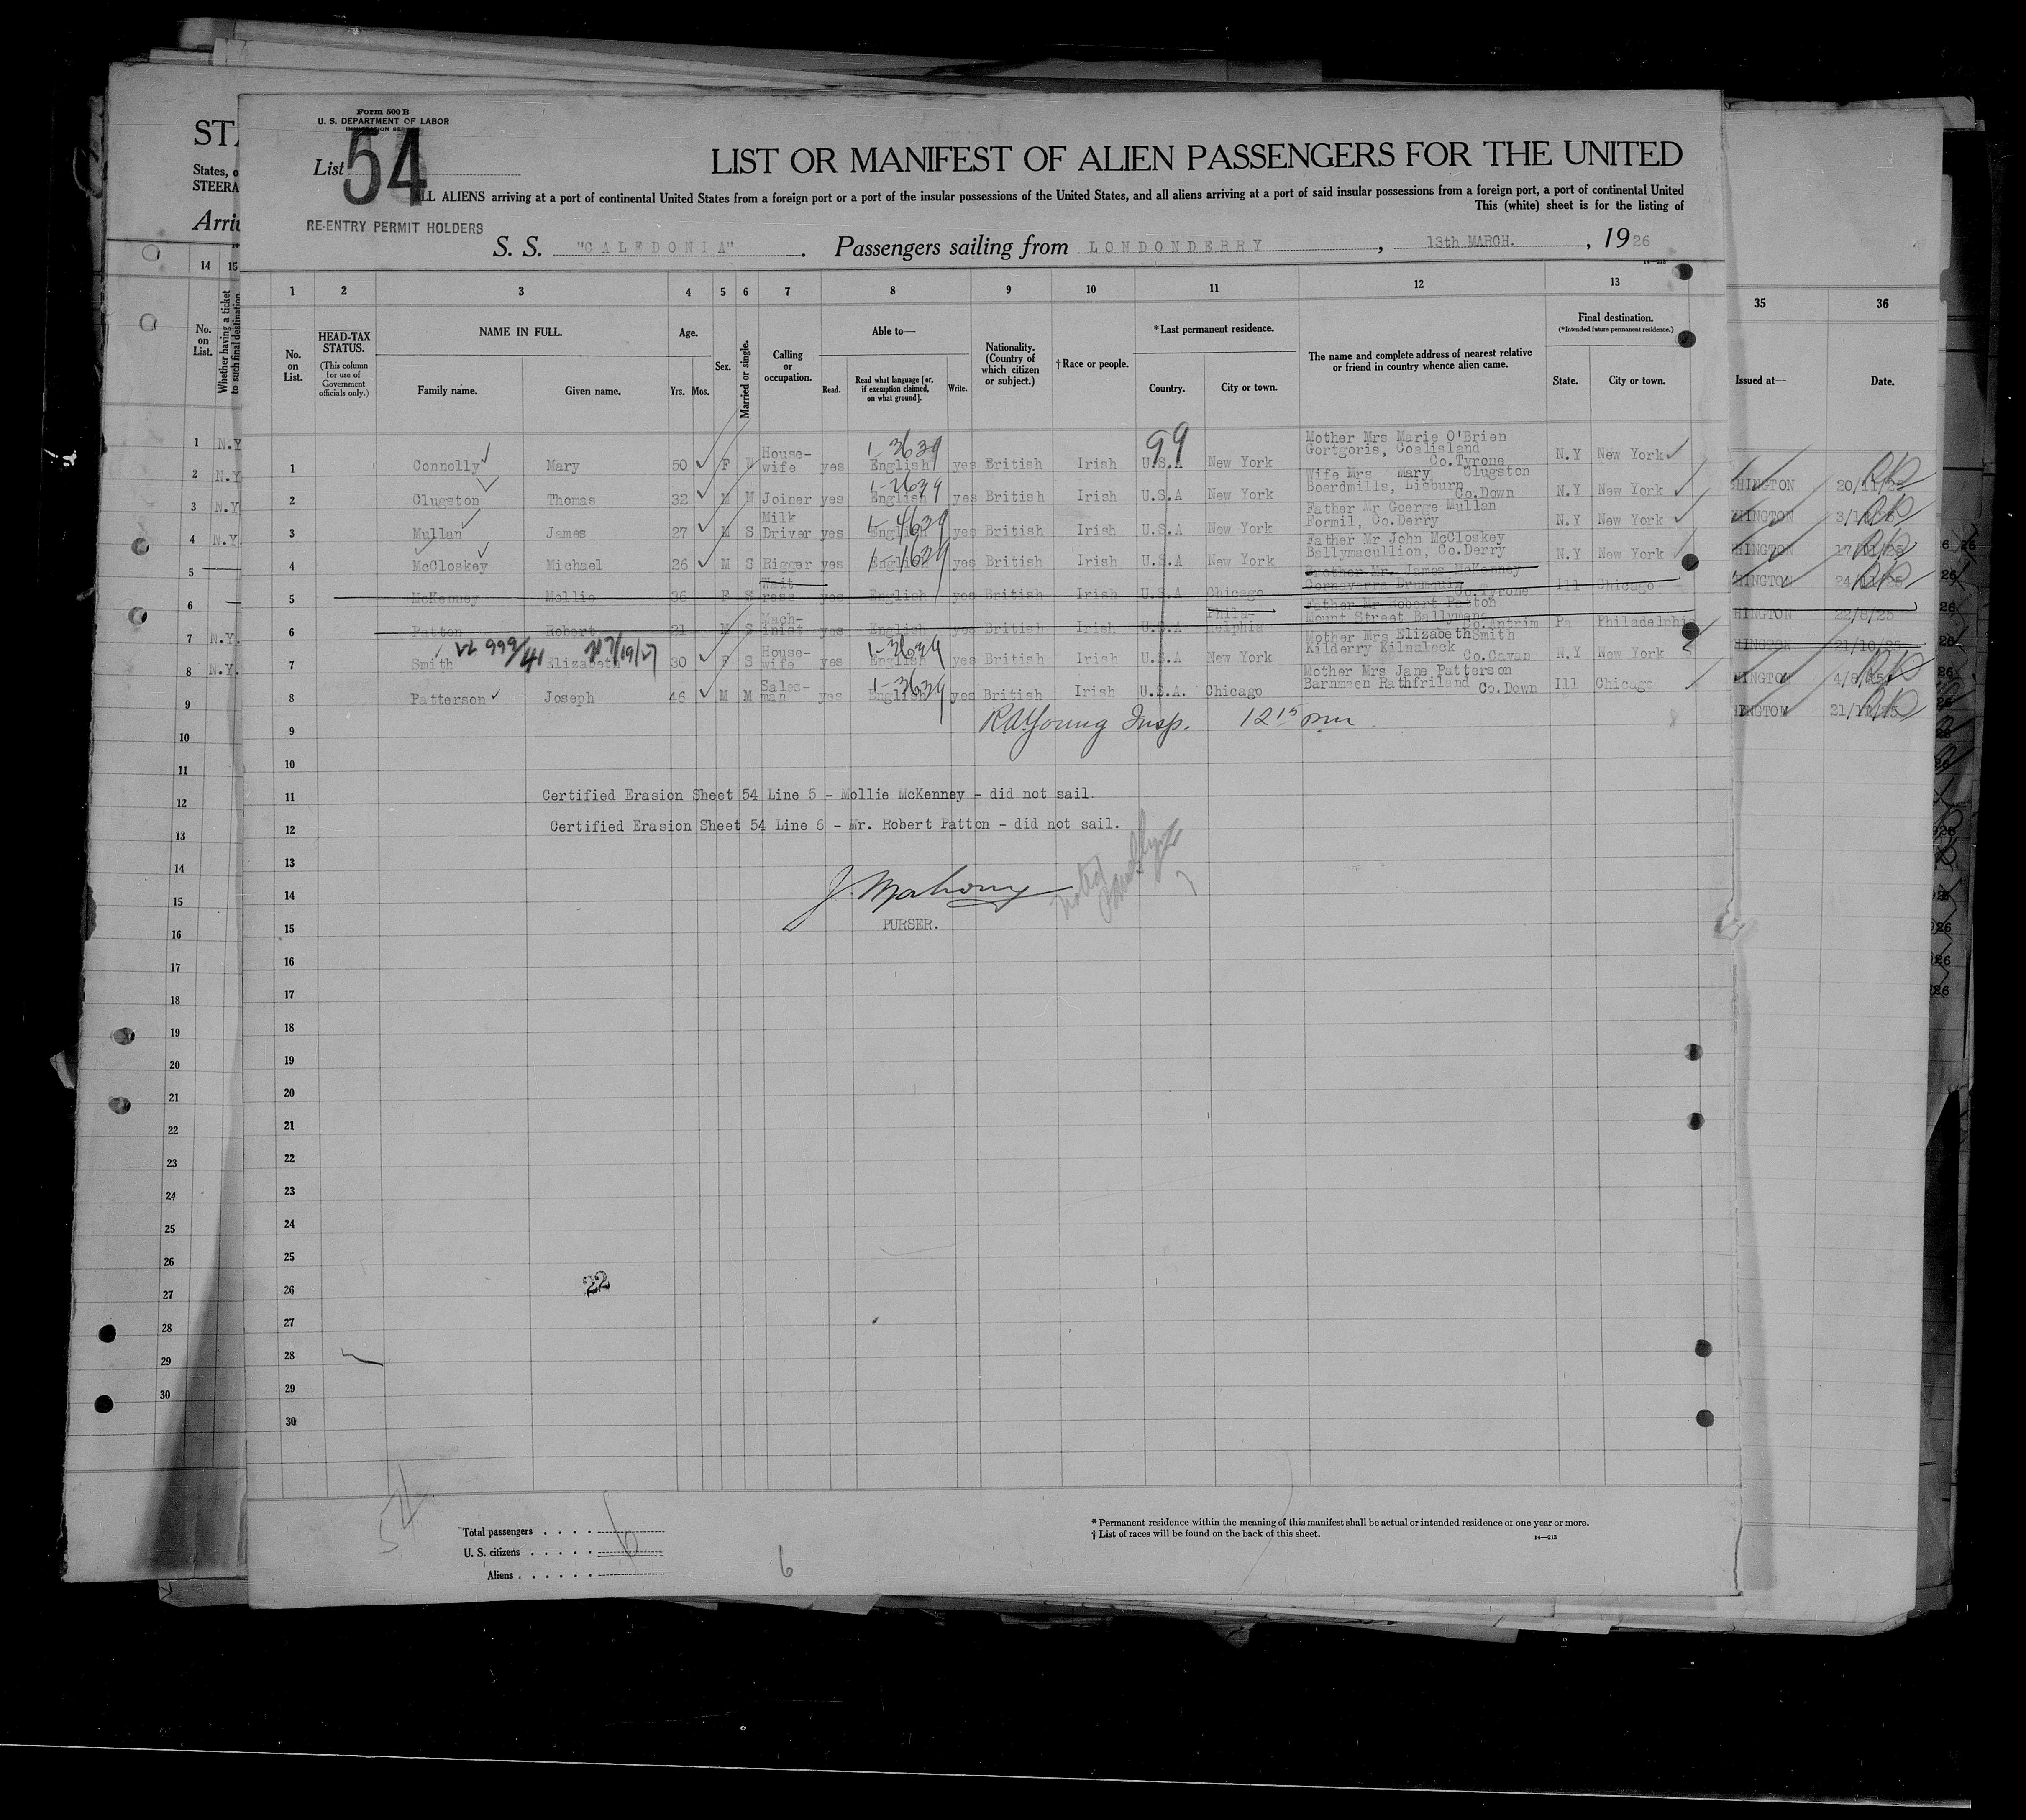 Form 500 B
U. S. DEPARTMENT OF LABOR
IMMIGRATION SERVICE
List 54
LIST OR MANIFEST OF ALIEN PASSENGERS FOR THE UNITED
ALL ALIENS arriving at a port of continental United States from a foreign port or a port of the insular possessions of the United States, and all aliens arriving at a port of said insular possessions from a foreign port, a port of continental United
This (white) sheet is for the listing of
RE-ENTRY PERMIT HOLDERS
S. S. "CALEDONIA". Passengers sailing from LONDONDERRY, 13th MARCH., 1926
1 2 3 4 5 6 7 8 9 10 11 12 13
No. on List.
HEAD-TAX STATUS.
(This column for use of Government officials only.)
NAME IN FULL.
Family name. Given name.
Age.
Yrs. Mos.
Sex.
Married or single.
Calling or occupation.
Able to—
Read. Read what language [or, if exemption claimed, on what ground]. Write.
Nationality. (Country of which citizen or subject.)
† Race or people.
*Last permanent residence.
Country. City or town.
The name and complete address of nearest relative or friend in country whence alien came.
Final destination.
(*Intended future permanent residence.)
State. City or town.
1 Connolly Mary 50 F W House-wife yes English yes British Irish U.S.A New York Mother Mrs Marie O'Brien Gortgoris, Coalisland Co.Tyrone N.Y New York
2 Clugston Thomas 32 M M Joiner yes English yes British Irish U.S.A New York Wife Mrs Mary Clugston Boardmills, Lisburn Co.Down N.Y New York
3 Mullan James 27 M S Milk Driver yes English yes British Irish U.S.A New York Father Mr Goerge Mullan Formil, Co.Derry N.Y New York
4 McCloskey Michael 26 M S Rigger yes English yes British Irish U.S.A New York Father Mr John McCloskey Ballymacullion, Co.Derry N.Y New York
5 McKenney Mollie 36 F S Wait-ress yes English yes British Irish U.S.A Chicago Brother Mr. James McKenney Cornavarra Drumquin Co.Tyrone Ill Chicago
6 Patton Robert 21 M S Mach-inist yes English yes British Irish U.S.A Phila-delphia Father Mr Robert Patton Mount Street Ballymena Co.Antrim Pa Philadelphia
7 Smith Elizabeth 30 F S House-wife yes English yes British Irish U.S.A New York Mother Mrs Elizabeth Smith Kilderry Kilnaleck Co.Cavan N.Y New York
8 Patterson Joseph 46 M M Sales-man yes English yes British Irish U.S.A. Chicago Mother Mrs Jane Patterson Barnmeen Rathfriland Co.Down Ill Chicago
99
1-3639
1-2639
1-4639
1-1639
1-3639
1-3639
9 R A Young Insp. 12 15 pm
10
11 Certified Erasion Sheet 54 Line 5 - Mollie McKenney - did not sail.
12 Certified Erasion Sheet 54 Line 6 - Mr. Robert Patton - did not sail.
13
14 J. Mahony
15 PURSER.
16
17
18
19
20
21
22
23
24
25
26 22
27
28
29
30
54
Total passengers 6
U. S. citizens
Aliens
6
* Permanent residence within the meaning of this manifest shall be actual or intended residence of one year or more.
† List of races will be found on the back of this sheet.
14—213
STA
States, o
STEERA
Arriv
14 15
No. on List.
Whether having a ticket to such final destination
1 N.Y
2 N.Y
3 N.Y
4 N.Y.
5
6
7 N.Y.
8 N.Y.
9
10
11
12
13
14
15
16
17
18
19
20
21
22
23
24
25
26
27
28
29
30
35 36
Issued at— Date.
HINGTON 20/11/25
HINGTON
HINGTON 17/11/25
HINGTON 24/11/25
HINGTON 22/8/25
HINGTON 21/10/25
INGTON
INGTON